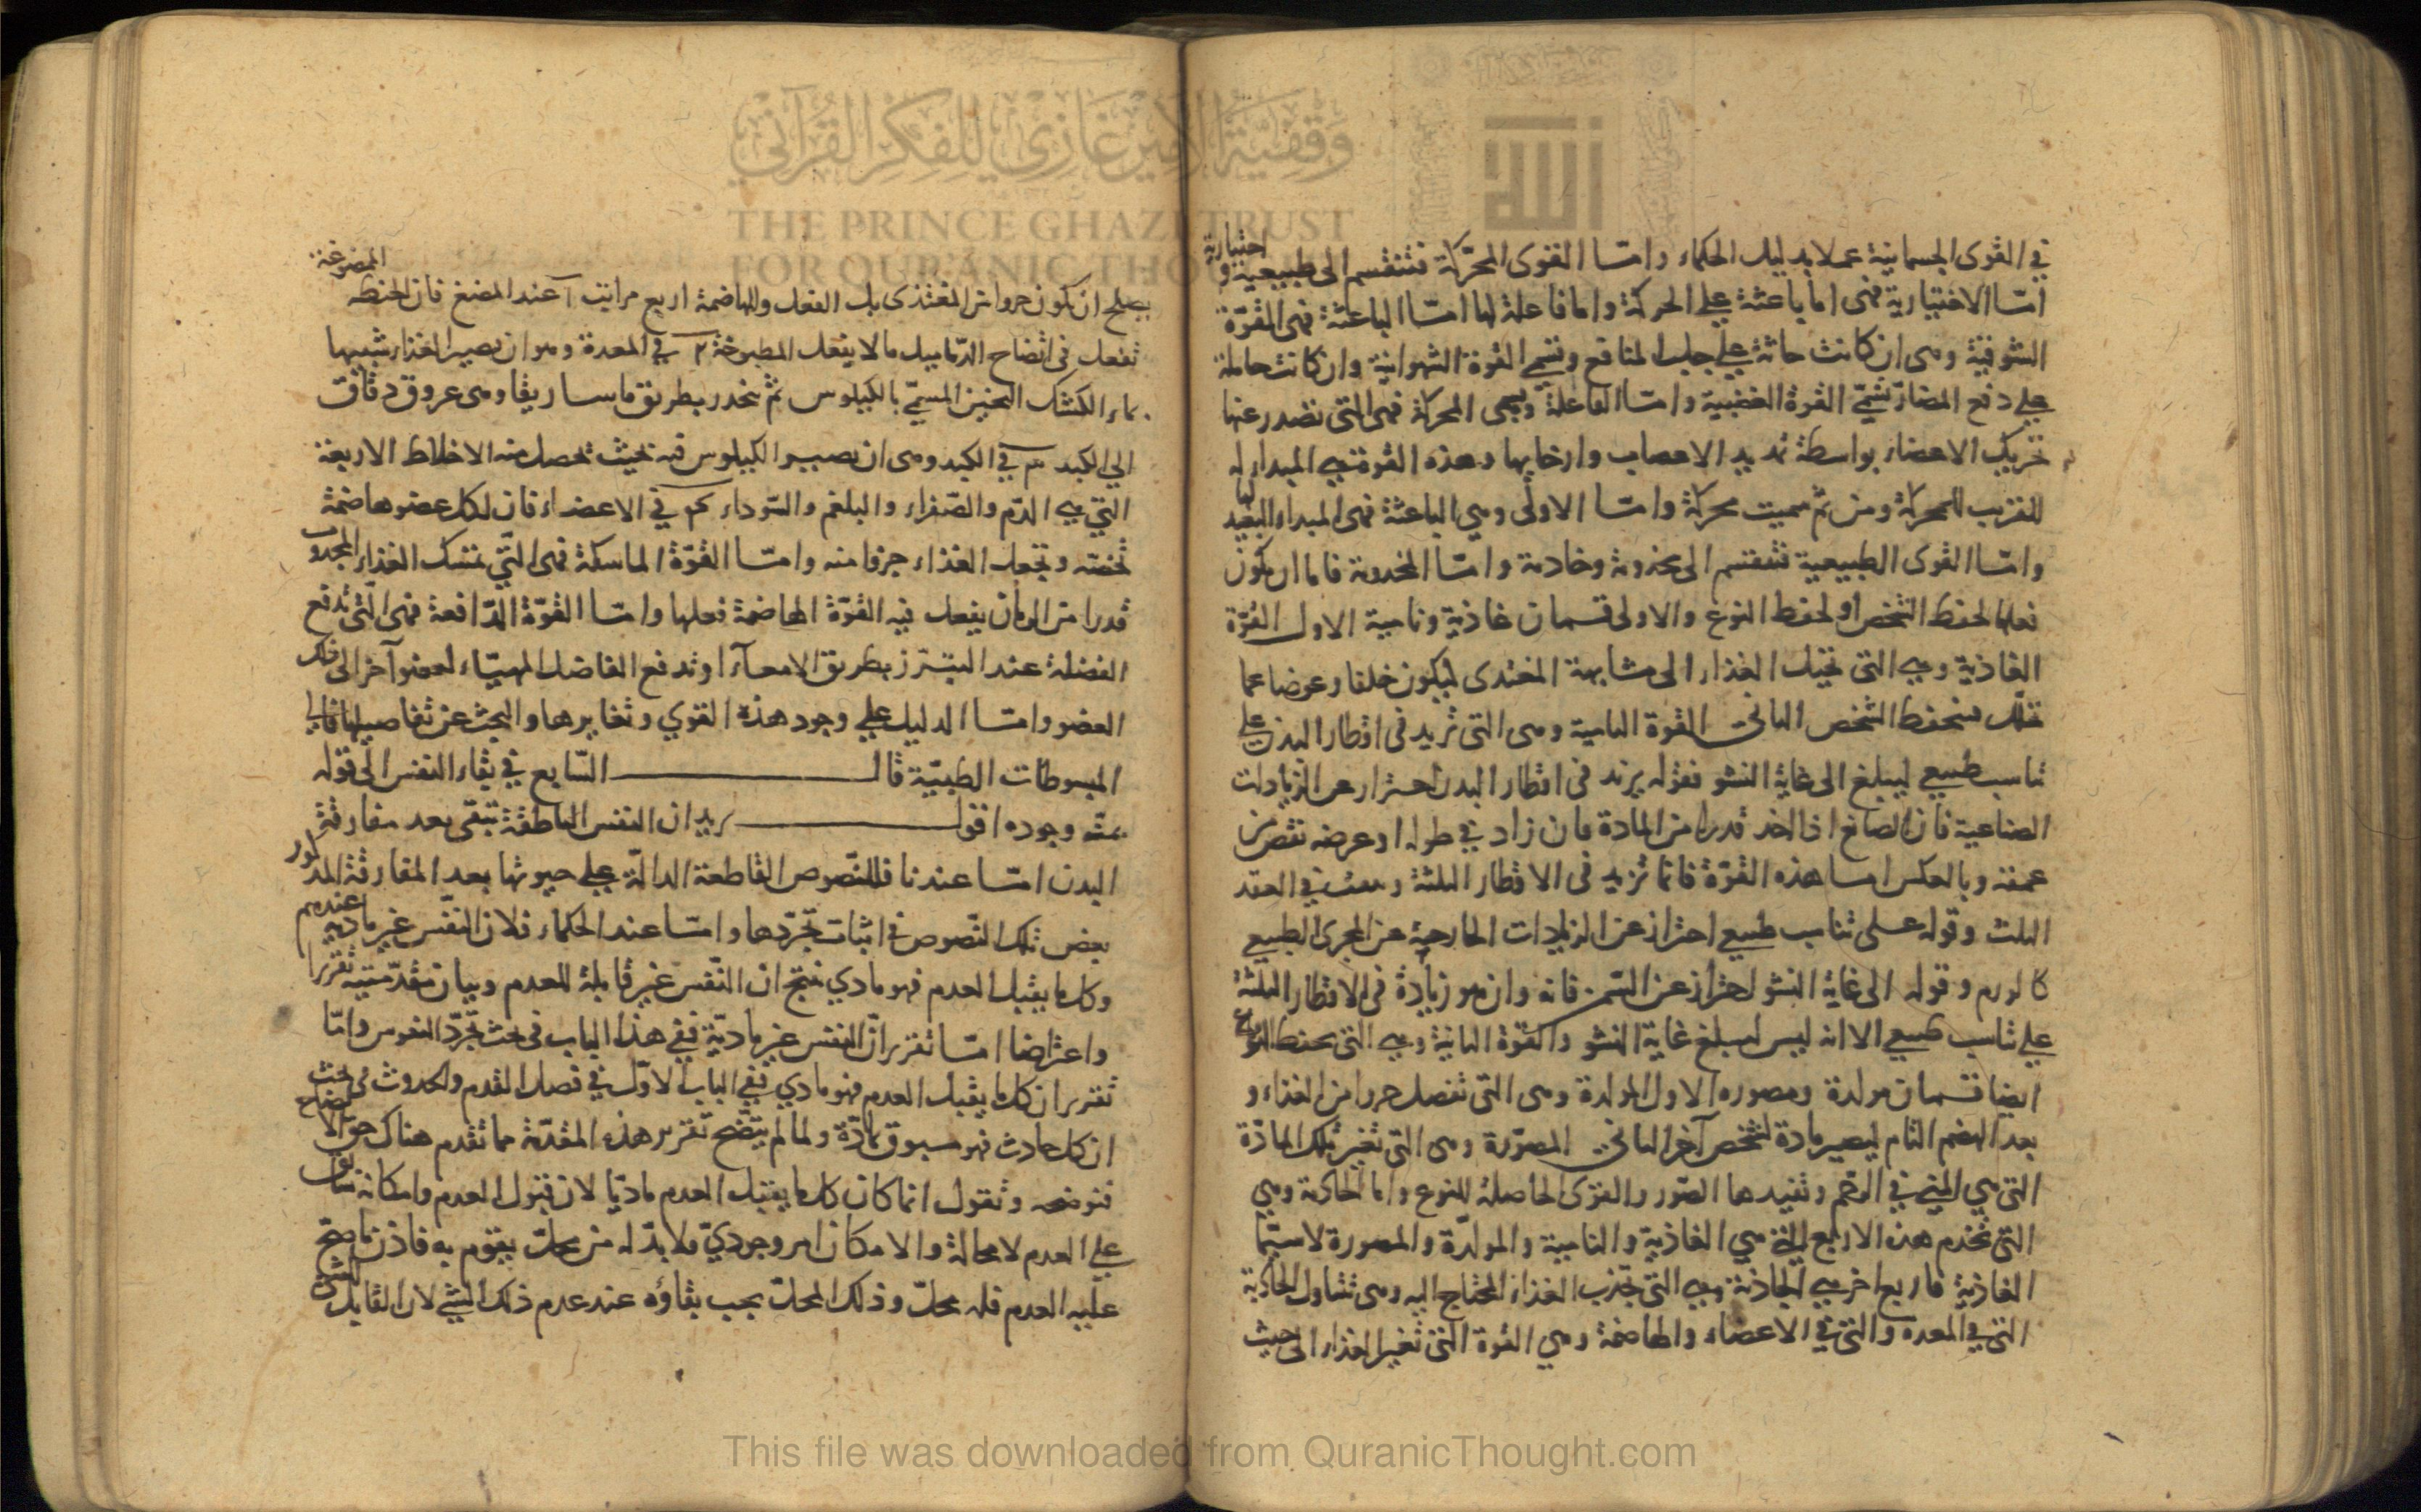 في القوى الجسمانية عملا بدليل الحكماء وامّا القوى المحرّكة فتنقسم الى طبيعية و اختيارية
امّا الاختيارية فهى اما باعثة على الحركة واما فاعلة لها امّا الباعثة فهى القوّة
الشوقية وهى ان كانت حاثة على جلب المنافع وتسمى القوة الشهوانية وان كانت حاملة
على دفع المضارّ تسمّى القوة الغضبية وامّا الفاعلة وهى المحركة فهى التى تصدر عنها
تحريك الاعضاء بواسطة تمديد الاعصاب وارخايها وهذه القوة هى المبداء له
القريب للحركة ومن ثمّ سميت محركة وامّا الاولى وهى الباعثة فهى المبداء البعيد لها
وامّا القوى الطبيعية فتنقسم الى مخدومة وخادمة وامّا المخدومة فاما ان يكون
فعلها لحفظ الشخص او لحفظ النوع والاولى قسمان غاذية ونامية الاول القوّة
الغاذية وهى التى تحيل الغذاء الى مشابهة المغتذى ليكون خلفا وعوضا عما
تحلّل فينحفظ الشخص الثانى القوة النامية وهى التى تزيد فى اقطار البدن على
تناسب طبيعى ليبلغ الى غاية النشو فقوله يزيد فى اقطار البدن احتراز عن الزيادات
الصناعية فان الصانع اذا اخذ قدرا من المادة فان زاد في طوله او عرضه نقص من
عمقه وبالعكس امّا هذه القوّة فانما تزيد فى الاقطار الثلثة
وقوله على تناسب طبيعى احتراز عن الزيادات الخارجة عن المجرى الطبيعى
كالورم وقوله الى غاية النشو احتراز عن السّمن فانه وان هو زيادة فى الاقطار الثلثة
على تناسب طبيعى الا انه ليس ليبلغ غاية النشو والقوة الثانية وهى التى تحفظ النوع
ايضا قسمان مولدة ومصوره الاول المولدة وهى التى تفصل جزوا من الغذاء و
بعد الهضم التام ليصير مادة لشخص آخر الثانى المصوّرة وهى التى تغيّر تلك المادّة
التى هى المنى في الرحم وتفيدها الصّور والقوى الحاصلة للنوع واما الخادمة وهى
التى تخدم هذه الاربع التى هى الغاذية والنامية والمولدّة والمصورة لا سيّما
الغاذية فاربع اخر هى الجاذبة وهى التى تجذب الغذاء المحتاج اليه وهى تتناول الجاذبة
التى في المعدة والتى في الاعضاء والهاضمة وهى القوة التى تغير الغذاء الى حيث
يصلح ان يكون جزوا من المغتذى بل الفعل وللهاضمة اربع مراتب آ عند المضغ فان الحنطة الممضوغة
تفعل فى انضاج الدّماميل ما لا يفعل المطبوخة ٢ في المعدة وهو ان يصير الغذاء شبيها
بماء الكشك الثخين المسمّى بالكيلوس ثم تنحدر بطريق ماساريقا وهى عروق دقاق
الى الكبد ٣ في الكبد وهى ان يصير الكيلوس فيه بحيث تحصل منه الاخلاط الاربعة
التي هى الدّم والصّفراء والبلغم والسّوداء ٤ في الاعضاء فان لكل عضو هاضمة
تخصّه وتجعل الغذاء جزوا منه وامّا القوّة الماسكة فهى الّتي تمسك الغذاء المجذوب
قدرا من الزمان يفعل فيه القوّة الهاضمة فعلها وامّا القوّة الدّافعة فهى الّتى تدفع
الفضلة عند التبرّز بطريق الامعآء او تدفع الفاضل المهيّاء لعضو آخر الى ذلك
العضو وامّا الدليل على وجود هذه القوي وتغايرها والبحث عن تفاصيلها فالى
المبسوطات الطبيّة قال السّابع في بقاء النفس الى قوله
وجوده اقول يريد ان النفس الناطقة تبقى بعد مفارقة
البدن امّا عندنا فللنّصوص القاطعة الدالّة على حيوتها بعد المفارقة المذكور
بعض تلك النّصوص فى اثبات تجرّدها وامّا عند الحكماء فلان النفس غير مادية عندهم
وكل ما يقبل العدم فهو مادي ينتج ان النّفس غير قابلة للعدم وبيان مقدّمتيه تقريرا
واعتراضا امّا تقرير انّ النفس غير ماديّة ففى هذا الباب فى بحث تجرّد النفوس وامّا
تقرير ان كل ما يقبل العدم فهو مادي ففي الباب الاوّل في فصل القدم والحدوث فى بحث
ان كل حادث فهو مسبوق بمادّة ولما لم يتّضح تقرير هذه المقدّمة مما تقدم هناك حق الايضاح
فنوضحه ونقول انما كان كل ما يقبل العدم ماديّا لان قبول العدم وامكانه سابق
على العدم لا محالة والامكان امر وجوديّ فلا بدّ له من محلّ يقوم به فاذن ما صحّ
عليه العدم فله محلّ وذلك المحلّ يجب بقاؤه عند عدم ذلك الشئ لان القابل للشئ
وقفية الأمير غازي للفكر القرآني
THE PRINCE GHAZI TRUST
FOR QUR'ANIC THOUGHT
This file was downloaded from QuranicThought.com